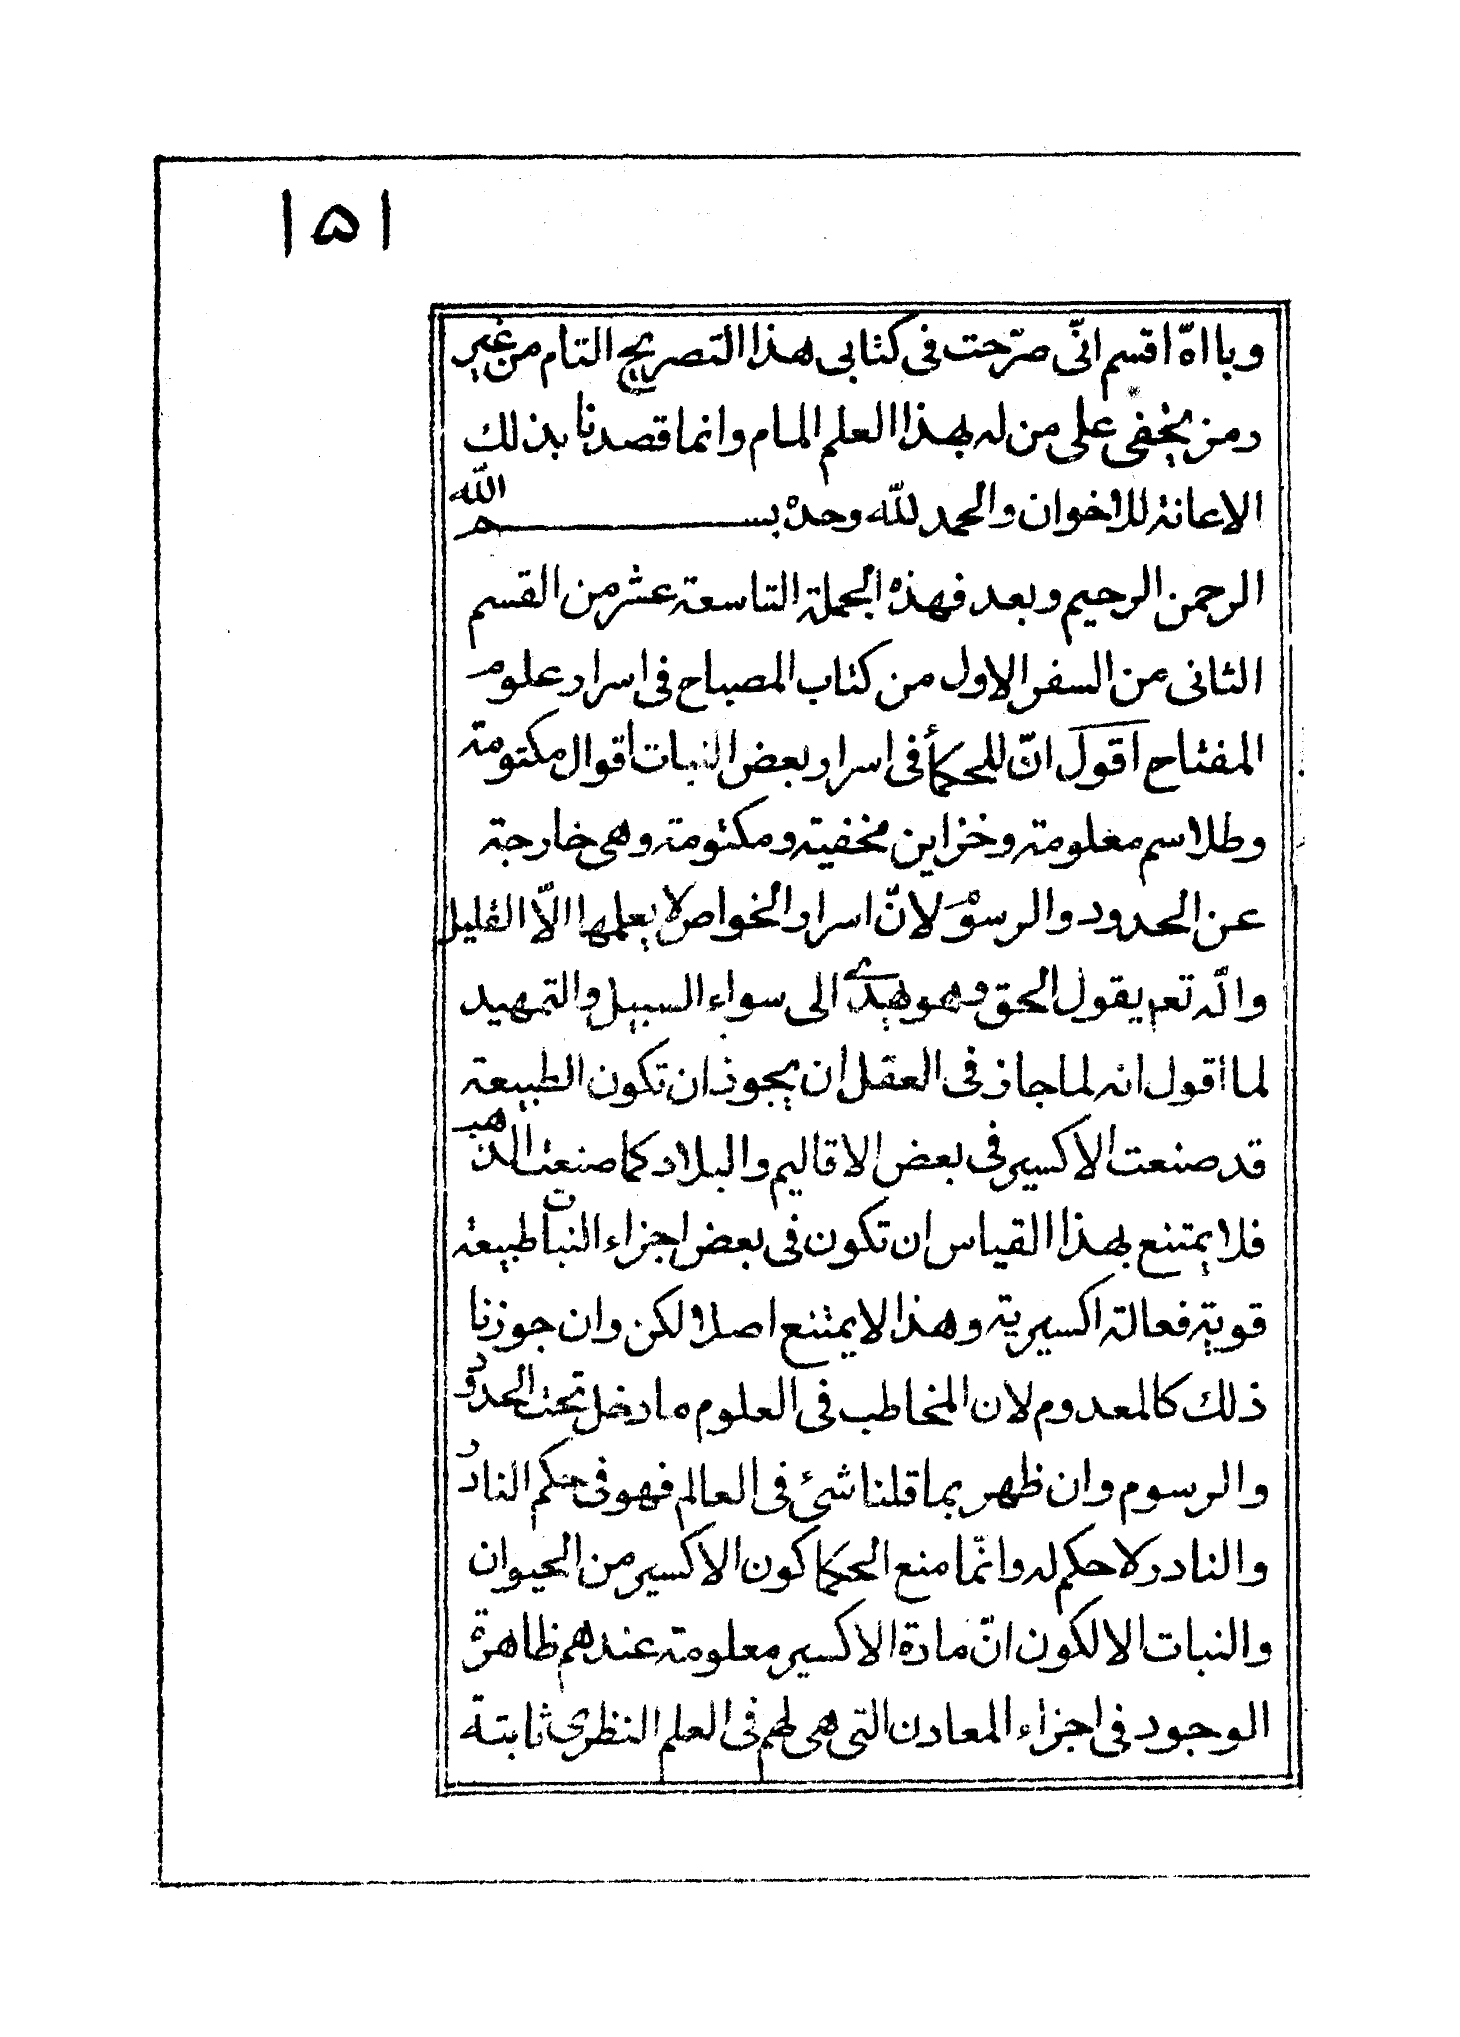 ١۵١
وبااﻟﻠﻪ اقسم انّى صرّحت فى كتابى هذا التصريح التام من غير
رمز يخفى على من له بهذا العلم المام وانما قصدنا بذلك
الاعانة للاخوان والحمد لله وحده بسم الله
الرحمن الرحيم وبعد فهذه الجملة التاسعة عشر من القسم
الثانى من السفر الاول من كتاب المصباح فى اسرار علوم
المفتاح اقول انّ للحكمأ فى اسرار بعض النبات اقوال مكتومة
وطلاسم معلومة وخزاين مخفية ومكتومة وهى خارجة
عن الحدود والرسوم لانّ اسرار الخواص لا يعلمها الّا القليل
والّه تعم يقول الحق وهو يهدى الى سواء السبيل والتمهيد
لما اقول انه لما جاز فى العقل ان يجوز ان تكون الطبيعة
قد صنعت الاكسير فى بعض الاقاليم والبلاد كما صنعت الذهب
فلا يمتنع بهذا القياس ان تكون فى بعض اجزاء النبات طبيعة
قوية فعالة اكسيرية وهذا لا يمتنع اصلا لكن وان جوزنا
ذلك كالمعدوم لان المخاطب فى العلوم ما دخل تحت الحدود
والرسوم وان ظهر بما قلنا شئ فى العالم فهو فى حكم النادر
والنادر لا حكم له وانّما منع الحكما كون الاكسير من الحيوان
والنبات الا لكون انّ مادة الاكسير معلومة عندهم ظاهرة
الوجود فى اجزاء المعادن التى هى لهم فى العلم النظرى ثابتة